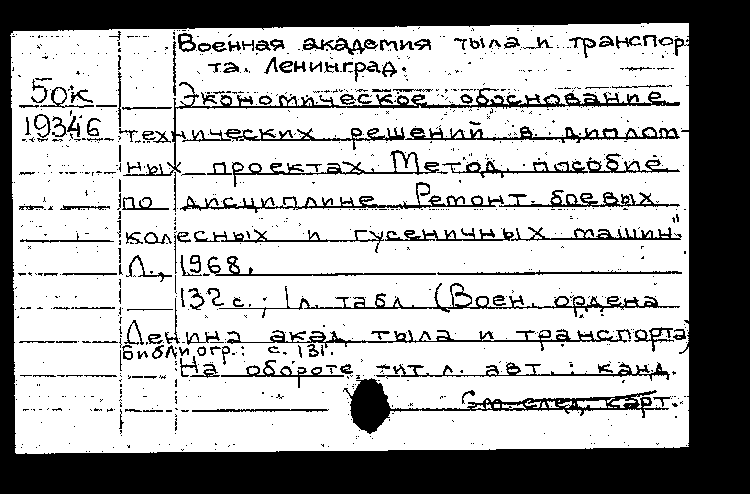 Военная академия тыла и транспор-
та. Ленинград.
50к
Экономическое обоснование
19346
технических решений в диплом-
ных проектах. Метод. пособие
по дисциплине „Ремонт боевых
колесных и гусеничных машин".
Л., 1968.
132 с.; 1 л. табл. (Воен. ордена
Ленина акад. тыла и транспорта)
Библиогр.: с. 131.
На обороте тит. л. авт.: канд.
См. след. карт.